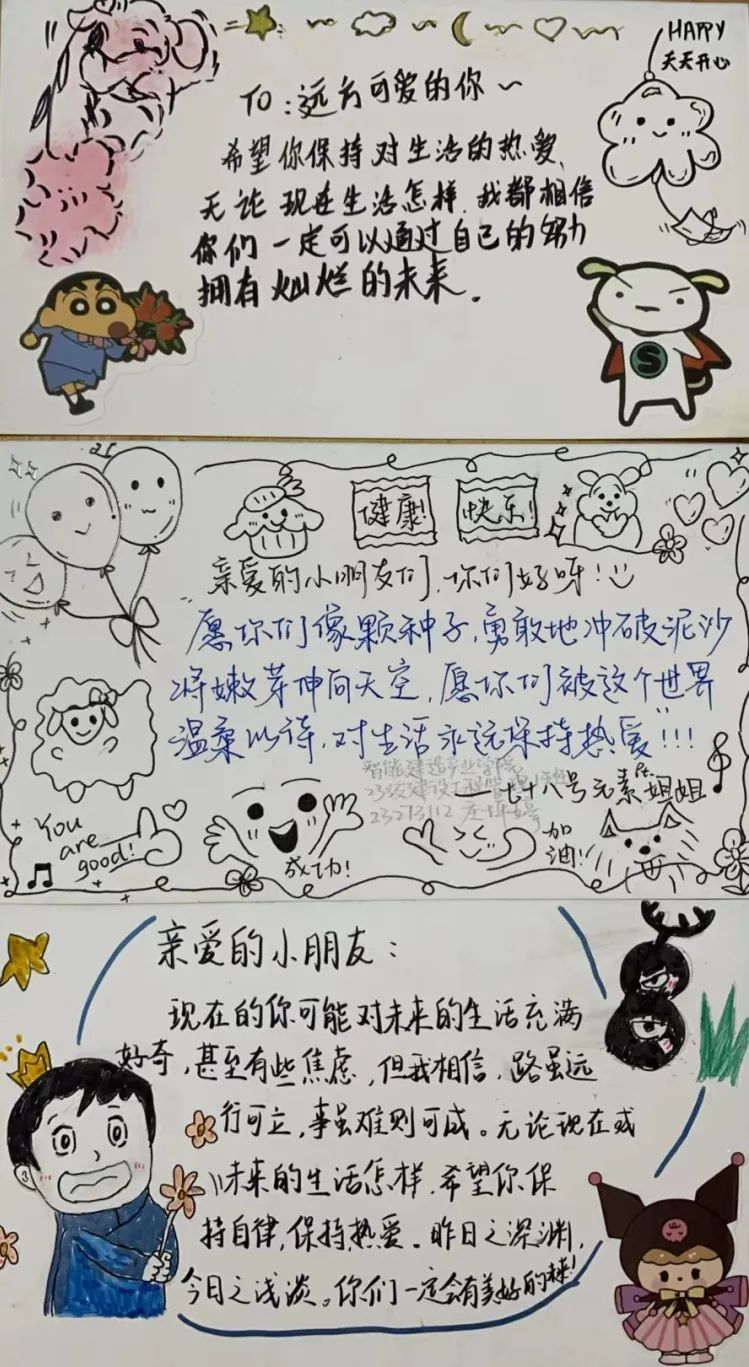 HAPPY
天天开心
TO：远方可爱的你～
希望你保持对生活的热爱，
无论现在生活怎样，我都相信
你们一定可以通过自己的努力
拥有灿烂的未来。
S
健康！
快乐！
亲爱的小朋友们，你们好呀！
愿你们像颗种子，勇敢地冲破泥沙
将嫩芽伸向天空，愿你们被这个世界
温柔以待，对生活永远保持热爱！！！
智能建造产业学院
23级建设工程管理
23273112
——七十八号元素姐姐
You
are
good!
成功！
加
油！
亲爱的小朋友：
现在的你可能对未来的生活充满
好奇，甚至有些焦虑，但我相信，路虽远
行可立，事虽难则可成。无论现在或
未来的生活怎样，希望你保
持自律，保持热爱。昨日之深渊，
今日之浅淡。你们一定会有美好的未来！